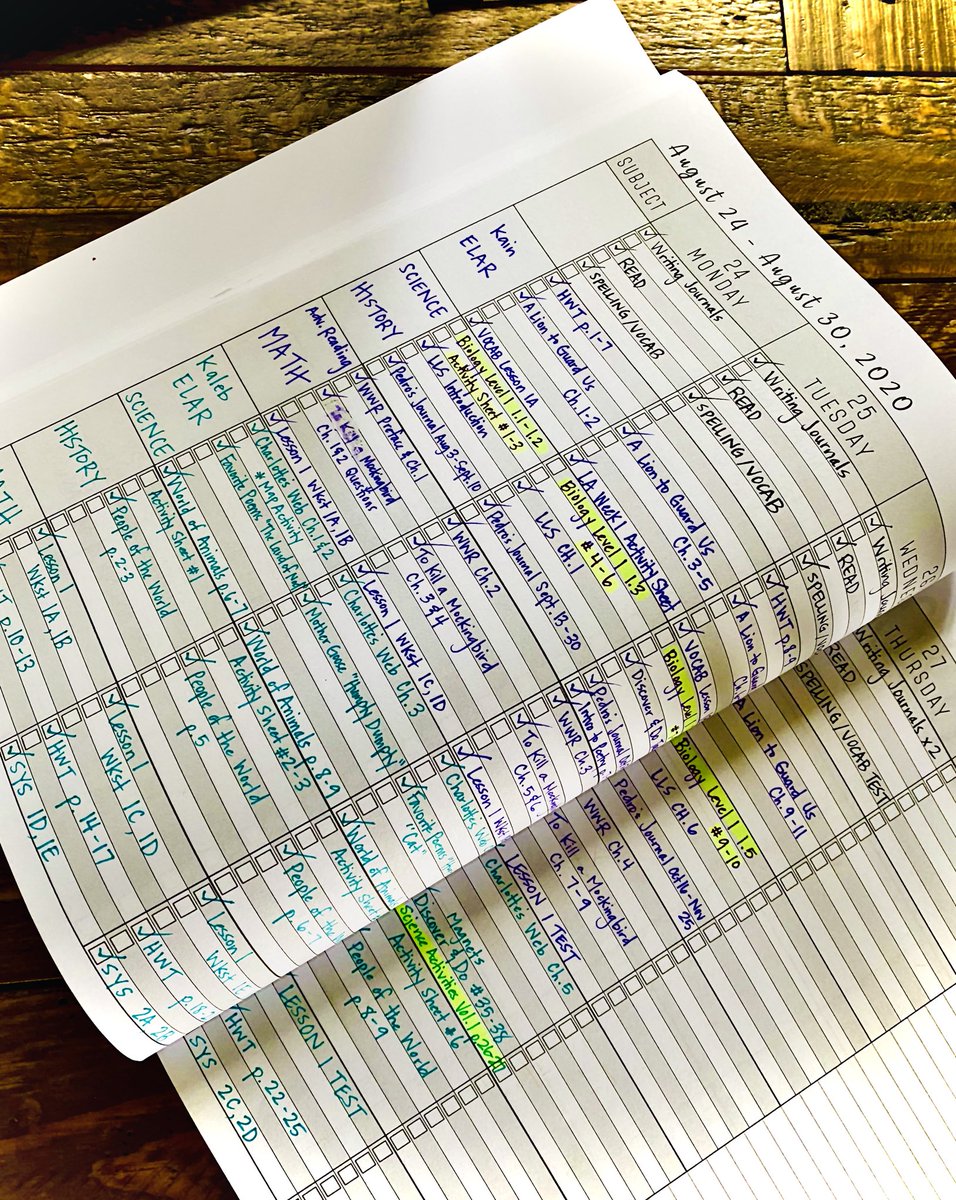 August 24 - August 30, 2020
SUBJECT
24
MONDAY
✓ Writing Journals
✓ READ
✓ SPELLING/VOCAB
Kain
ELAR
✓ HWT p. 1-7
✓ A Lion to Guard Us
Ch. 1-2
✓ VOCAB Lesson 1A
SCIENCE
Biology Level 1 1.1-1.2
Activity Sheet #1-3
✓ LLS Introduction
HISTORY
✓ Pedro's Journal Aug 3-Sept. 10
✓ WWR Preface & Ch. 1
Adv. Reading
✓ To Kill a Mockingbird
Ch. 1 & 2 Questions
MATH
✓ Lesson 1 Wkst 1A, 1B
Kaleb
ELAR
✓ Charlottes Web Ch. 1 & 2
* Map Activity
✓ Favorite Poems "The Land of Nod"
SCIENCE
✓ World of Animals p. 6-7
Activity Sheet #1
HISTORY
✓ People of the World
p. 2-3
MATH
✓ Lesson 1
Wkst 1A, 1B
p. 10-13
25
TUESDAY
✓ Writing Journals
✓ READ
✓ SPELLING/VOCAB
✓ A Lion to Guard Us
Ch. 3-5
✓ LA Week 1 Activity Sheet
Biology Level 1 1.3
# 4-6
✓ LLS CH. 1
✓ Pedro's Journal Sept. 13-30
✓ WWR Ch. 2
✓ To Kill a Mockingbird
Ch. 3 & 4
✓ Lesson 1 Wkst 1C, 1D
✓ Charlottes Web Ch. 3
✓ Mother Goose "Humpty Dumpty"
✓ World of Animals p. 8-9
Activity Sheet #2-3
✓ People of the World
p. 5
✓ Lesson 1
Wkst 1C, 1D
✓ HWT p. 14-17
✓ SYS 1D, 1E
26
✓ Writing
✓ READ
✓ SPELLING/
✓ HWT p. 8-9
✓ A Lion to
✓ VOCAB Lesson
Biology Level
✓ Discover &
✓ Pedro's Journal
✓ Intro to
✓ WWR Ch 3
✓ To Kill a
Ch. 5 & 6
✓ Lesson 1
✓ Charlottes
✓ Favorite Poems
"Cat"
✓ World of
Activity
✓ People of
p. 6-7
✓ Lesson 1
Wkst 1E
✓ HWT
✓ SYS 2A
27
THURSDAY
Writing Journals x2
READ
SPELLING/VOCAB TEST
A Lion to Guard Us
Ch. 9-11
Biology Level 1 1.5
# 9-10
LLS CH. 6
Pedro's Journal Oct 16-Nov
25
WWR Ch. 4
To Kill a Mockingbird
Ch. 7-9
LESSON 1 TEST
Charlottes Web Ch. 5
Magnets
Discover & Do #35-38
Science Activities Vol. 1
Activity Sheet #6
People of the World
p. 8-9
LESSON 1 TEST
HWT p. 22-25
SYS 2C, 2D